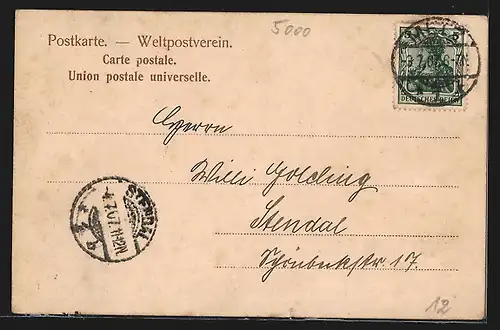 5000
Postkarte. — Weltpostverein.
Carte postale.
Union postale universelle.
DEUTSCHES REICH
Herrn
Willi Golding
Stendal
STENDAL
-4.7.07.11-12V.
Schönbeckstr 17.
12